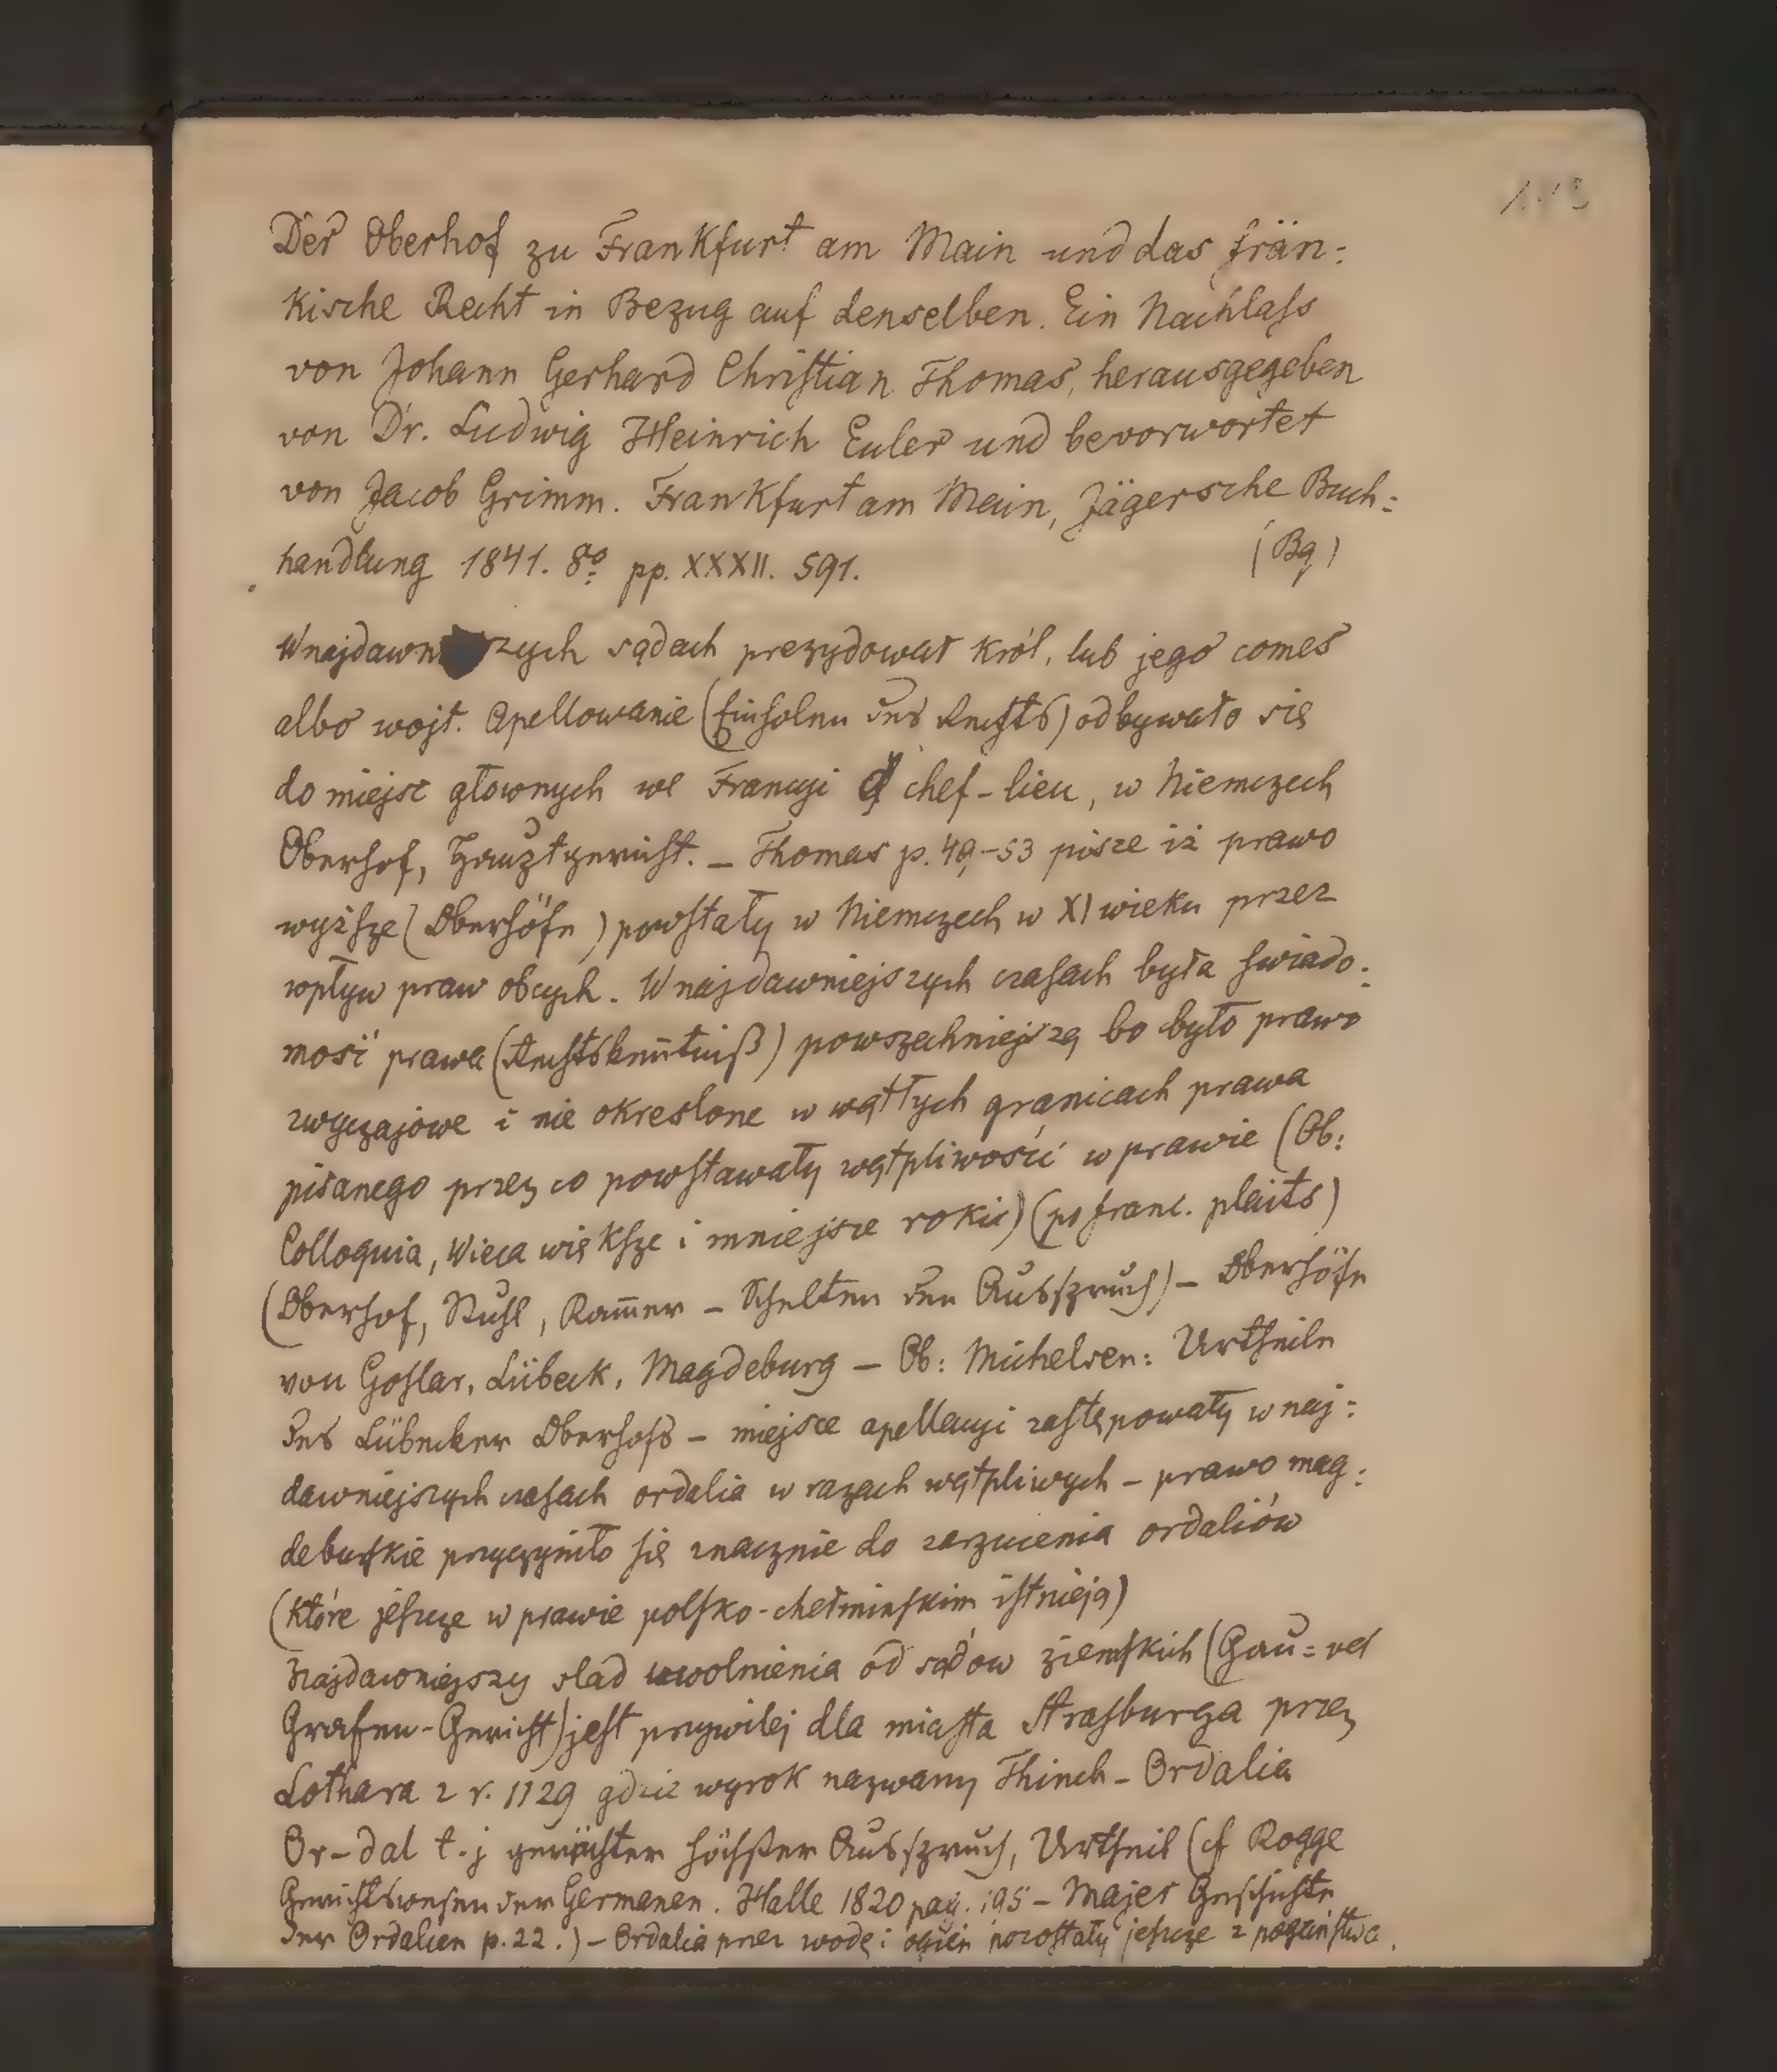 Der Oberhof zu Frankfurt am Main und das frän:
kische Recht in Bezug auf denselben. Ein Nachlaſs
von Johann Gerhard Chriſtian Thomas, herausgegeben
von Dr. Ludwig Heinrich Euler und bevorwortet
von Jacob Grimm. Frankfurt am Main, Jägersche Buch:
handlung 1841. 8vo pp. XXXII. 591. (Bg)
W najdawn szych sądach prezydował król, lub jego comes
albo wojt. Apellowanie (Einholen des Rechts) odbywało się
do miejsc głownych we Francyi chef-lieu, w Niemczech
Oberhof, Hauptgericht. – Thomas p. 49-53 pisze iż prawo
wyżſze (Oberhöfe) powſtały w Niemczech w XI wieku przez
wpływ praw obcych. W najdawniejszych czaſach była ſwiado:
mość prawa (Rechtskentniß) powszechniejszą bo było prawo
zwyczajowe i nie okreslone w wątłych granicach prawa
pisanego przez co powſtawały wątpliwości w prawie (Ob:
Colloquia, Wieca większe i mniejsze rokie) (po franc. plaits)
(Oberhof, Stuhl, Kam̄er – Schelten den Ausspruch) – Oberhöfe
von Goslar, Lübeck, Magdeburg – Ob: Michelsen: Urtheile
des Lübecker Oberhofs – miejsce apellacyi zaſtępowały w naj:
dawniejszych czaſach ordalia w razach wątpliwych – prawo mag:
deburſkie przyczyniło ſię znacznie do zarzucenia ordaliów
(które jeſzcze w prawie polſko-chełminſkim iſtnieją)
Najdawniejszy slad uwolnienia od sądow ziemſkich (Gau= vel
Grafen-Gericht) jeſt przywilej dla miaſta Straſburga przez
Lothara z r. 1129 gdzie wyrok nazwany Thinch – Ordalia
Or-dal t.j gerechter höchster Ausspruch, Urtheil (cf Rogge
Gerichtswesen der Germanen. Halle 1820 pag. 195 – Majer Geschichte
der Ordalien p. 22.) – Ordalia przez wodę i ogień pozoſtały jeſzcze z pogańſtwa.